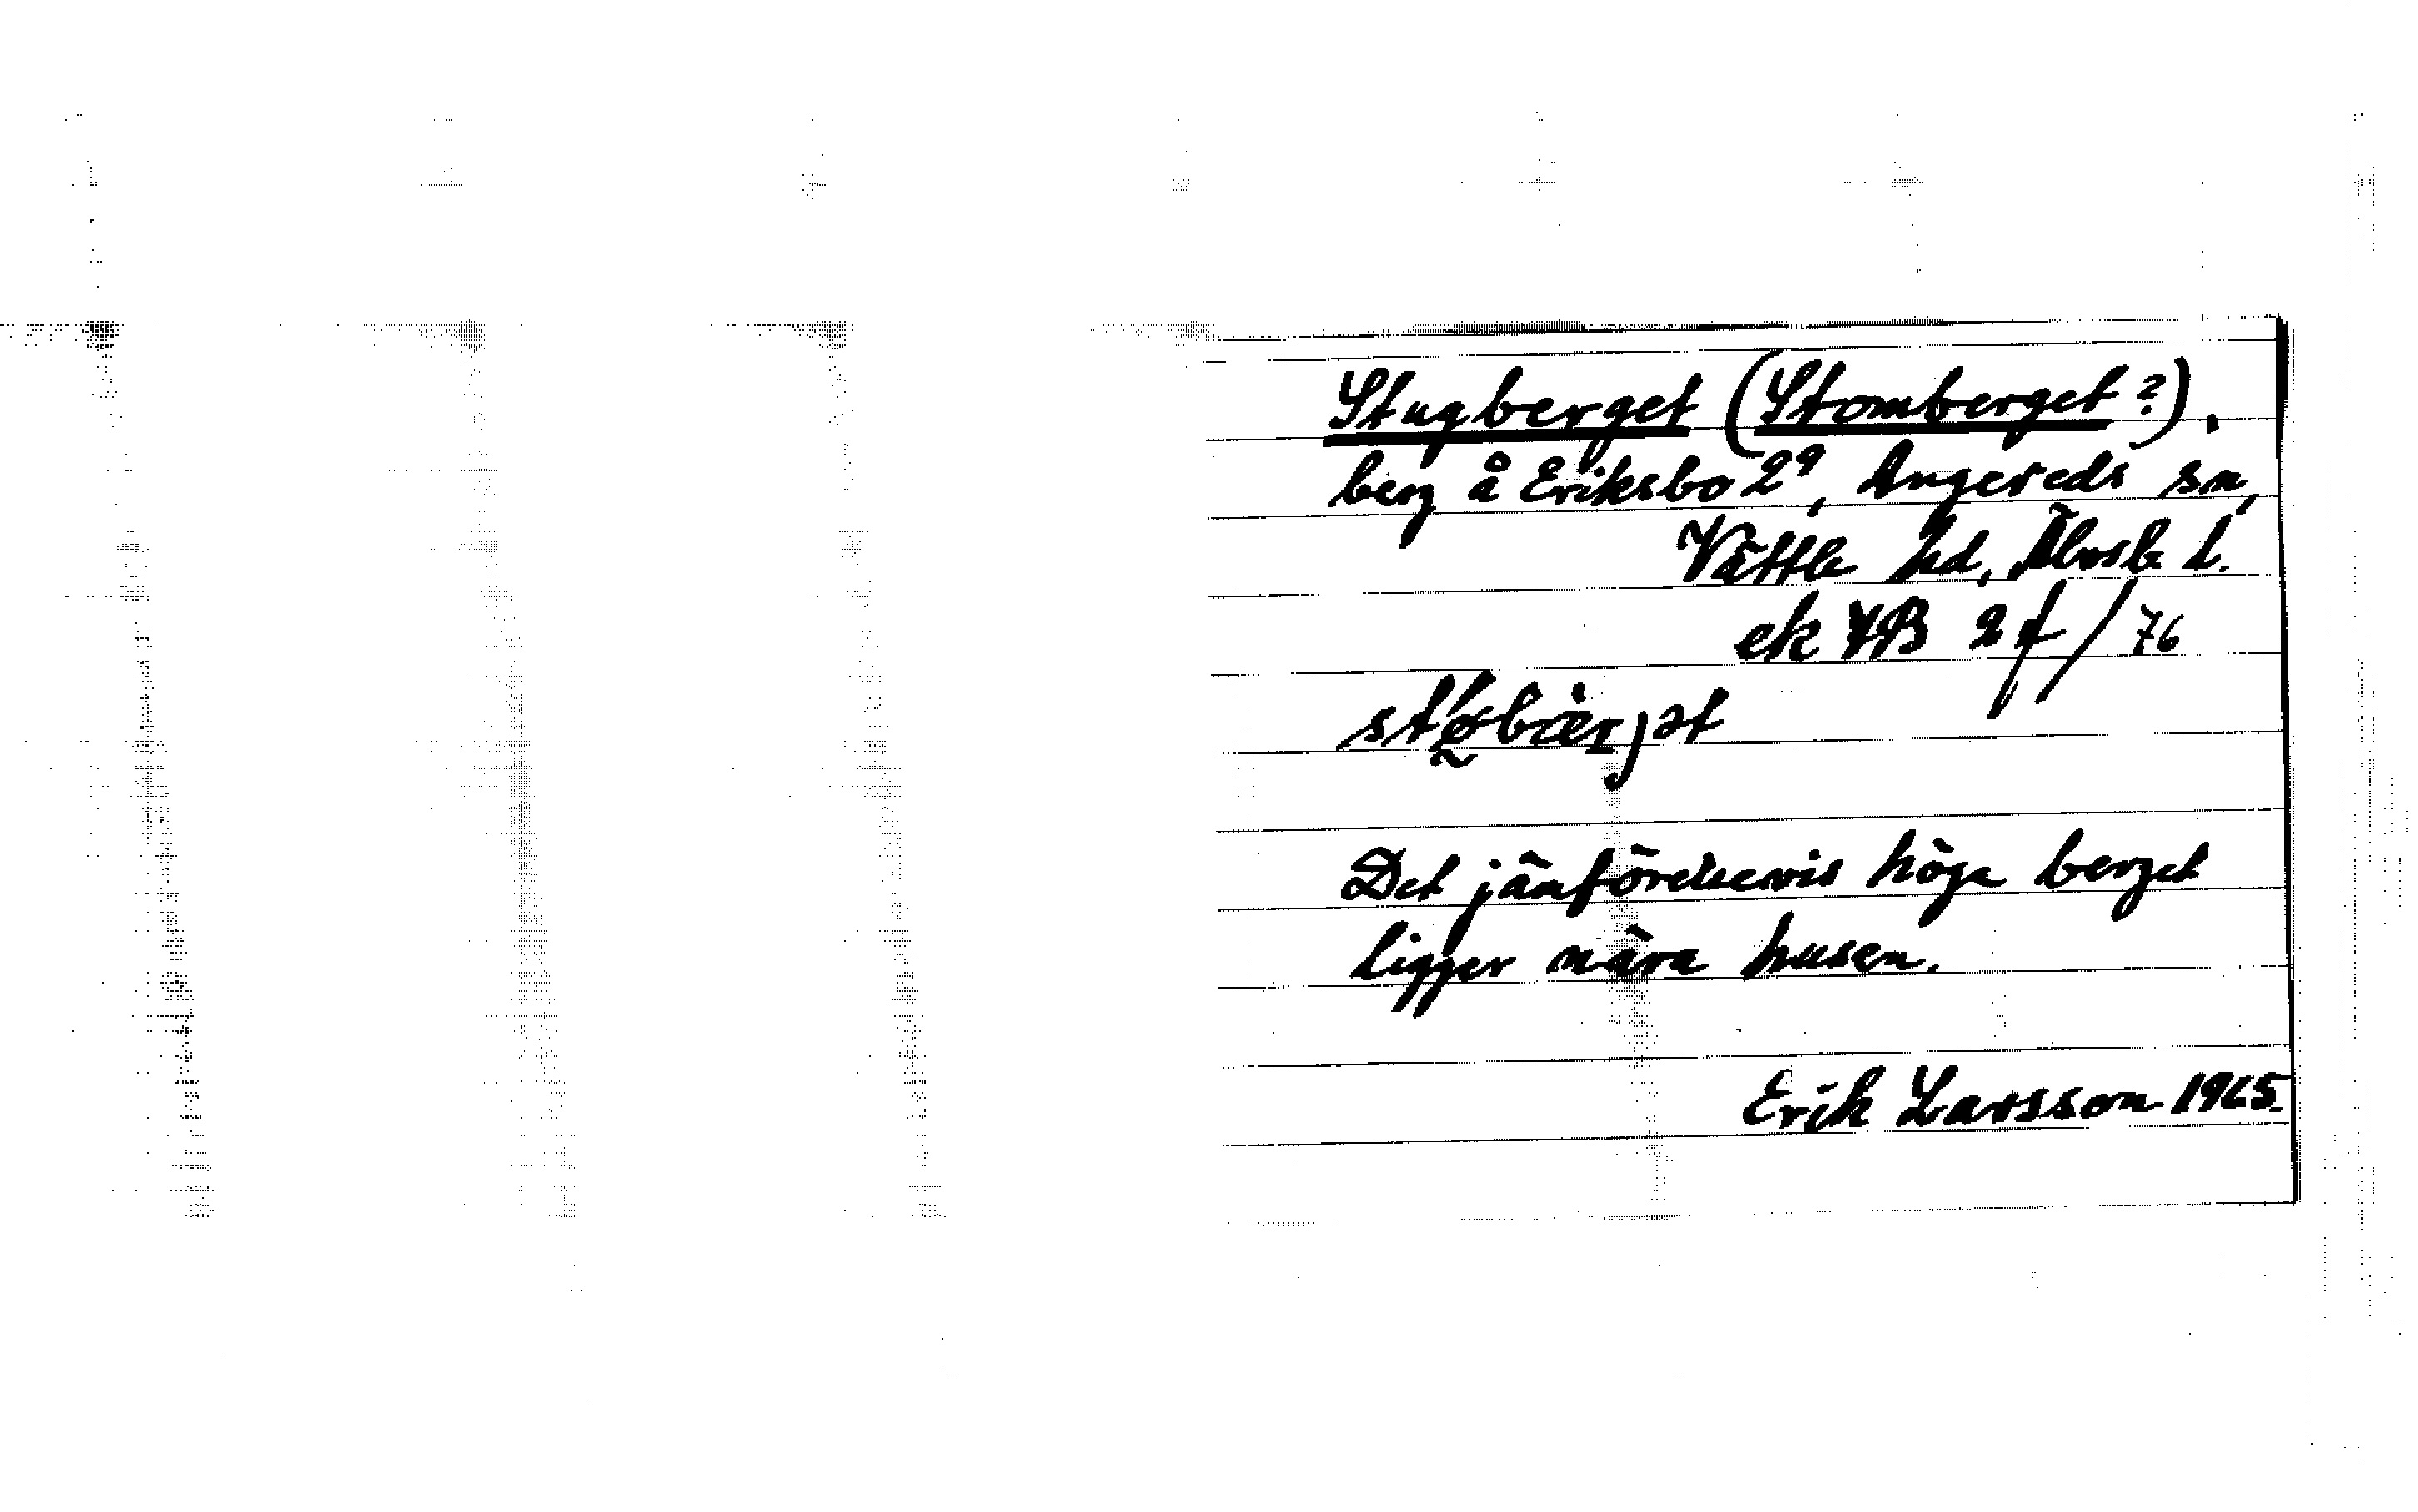 Stugberget (Stomberget?).
berg å Eriksbo 2⁹, Angereds sn,
Vättle hd, Älvsb. l.
ek 7B 2f/76
Det jämförelsevis höga berget
ligger nära husen.
Erik Larsson 1965.